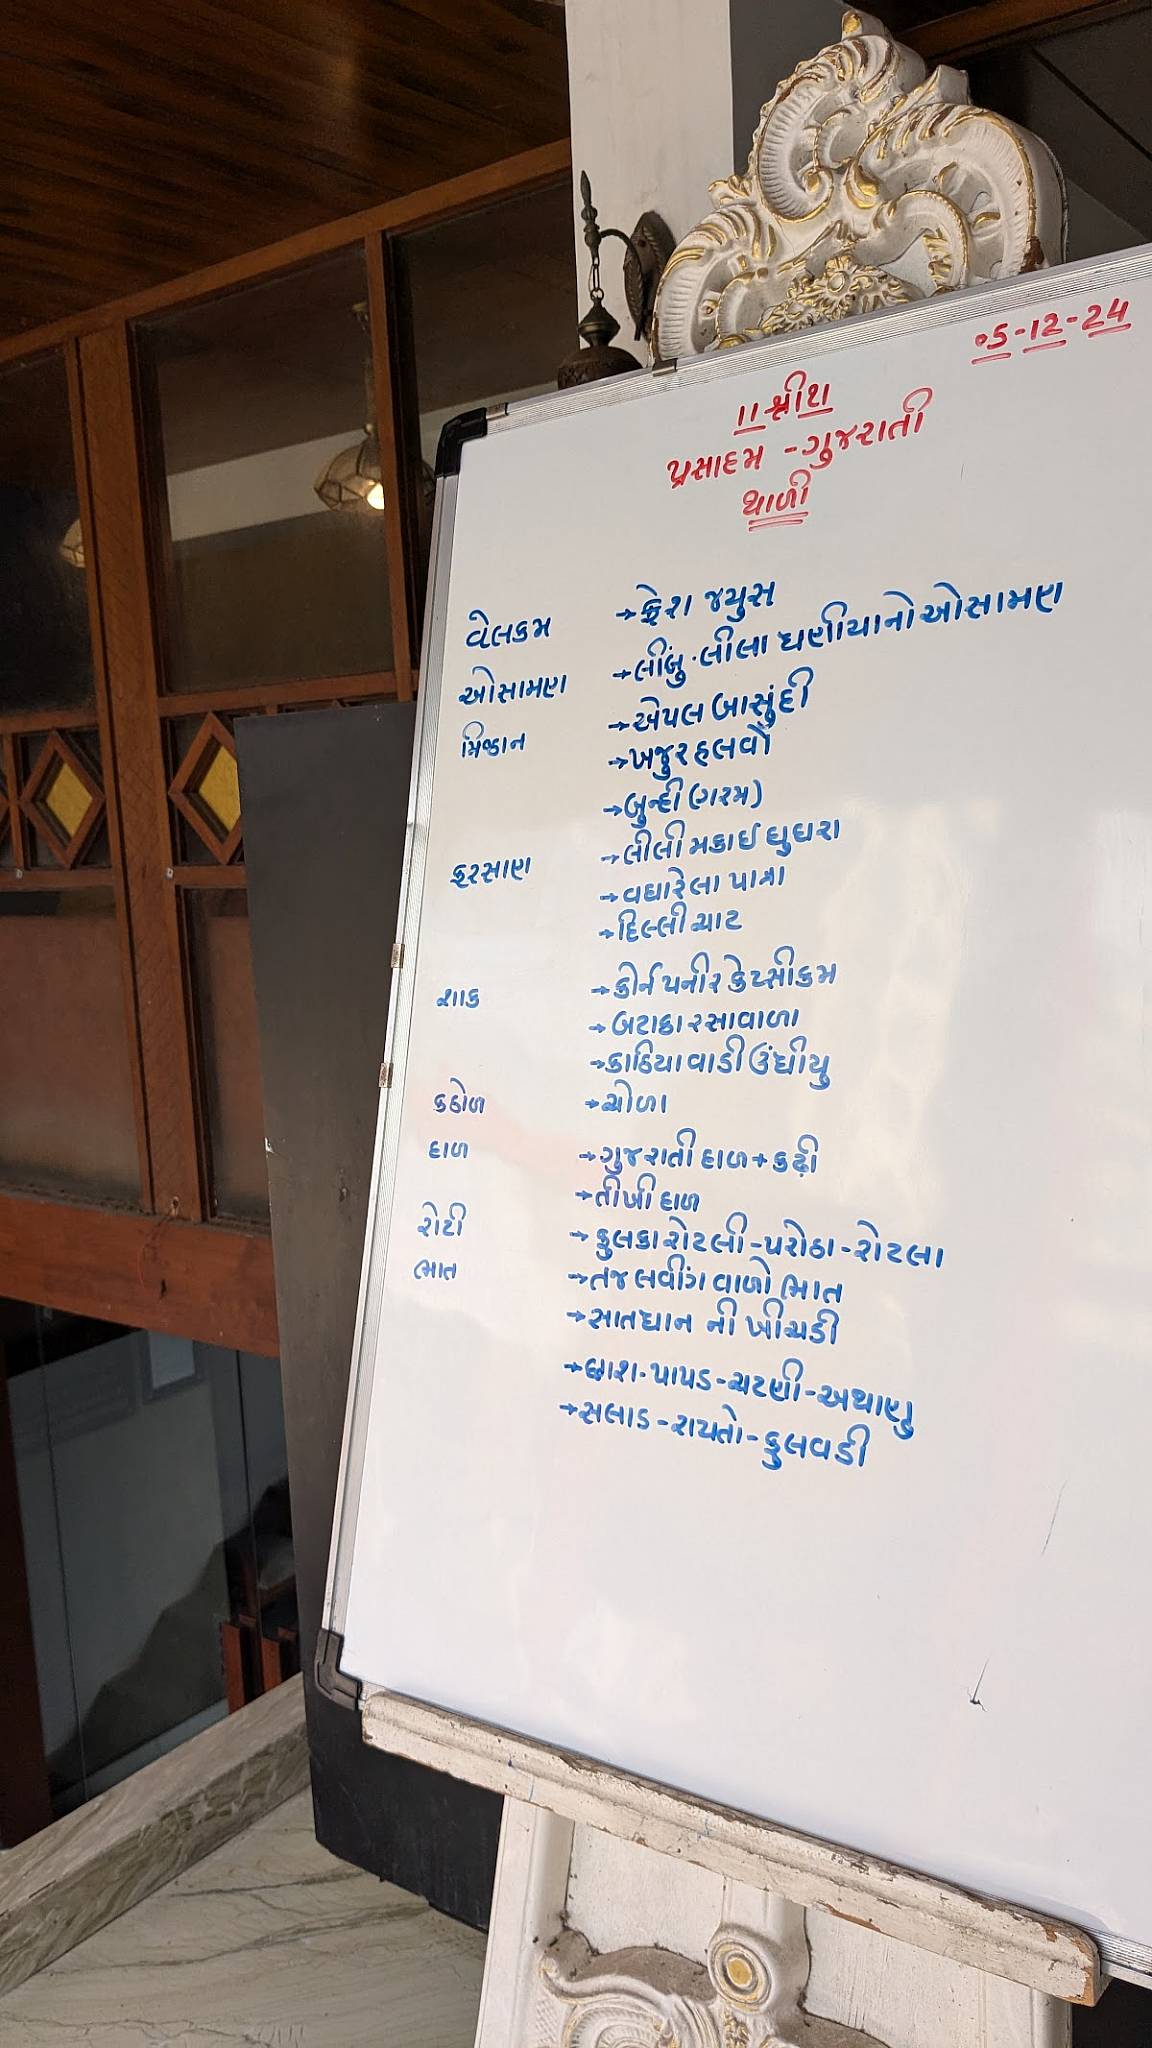 ૦5-12-24
।। શ્રી ।।
પ્રસાદમ - ગુજરાતી
થાળી
વેલકમ → ફ્રેશ જ્યુસ
ઓસામણ → લીંબુ. લીલા ધાણીયાનો ઓસામણ
મિષ્ઠાન → એપલ બાસુંદી
→ ખજુર હલવો
→ બુન્દી (ગરમ)
ફરસાણ → લીલી મકાઈ ઘુઘરા
→ વઘારેલા પાત્રા
→ દિલ્લી ચાટ
શાક → કોર્ન પનીર કેપ્સીકમ
→ બટાકા રસાવાળા
→ કાઠિયાવાડી ઉંધીયુ
કઠોળ → ચોળા
દાળ → ગુજરાતી દાળ + કઢી
→ તીખી દાળ
રોટી → ફુલકા રોટલી - પરોઠા - રોટલા
ભાત → તજ લવીંગ વાળો ભાત
→ સાતધાન ની ખીચડી
→ છાશ - પાપડ - ચટણી - અથાણુ
→ સલાડ - રાયતો - ફુલવડી